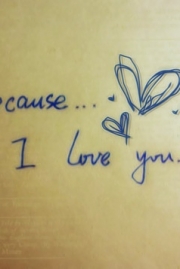 ecause...
I love you.